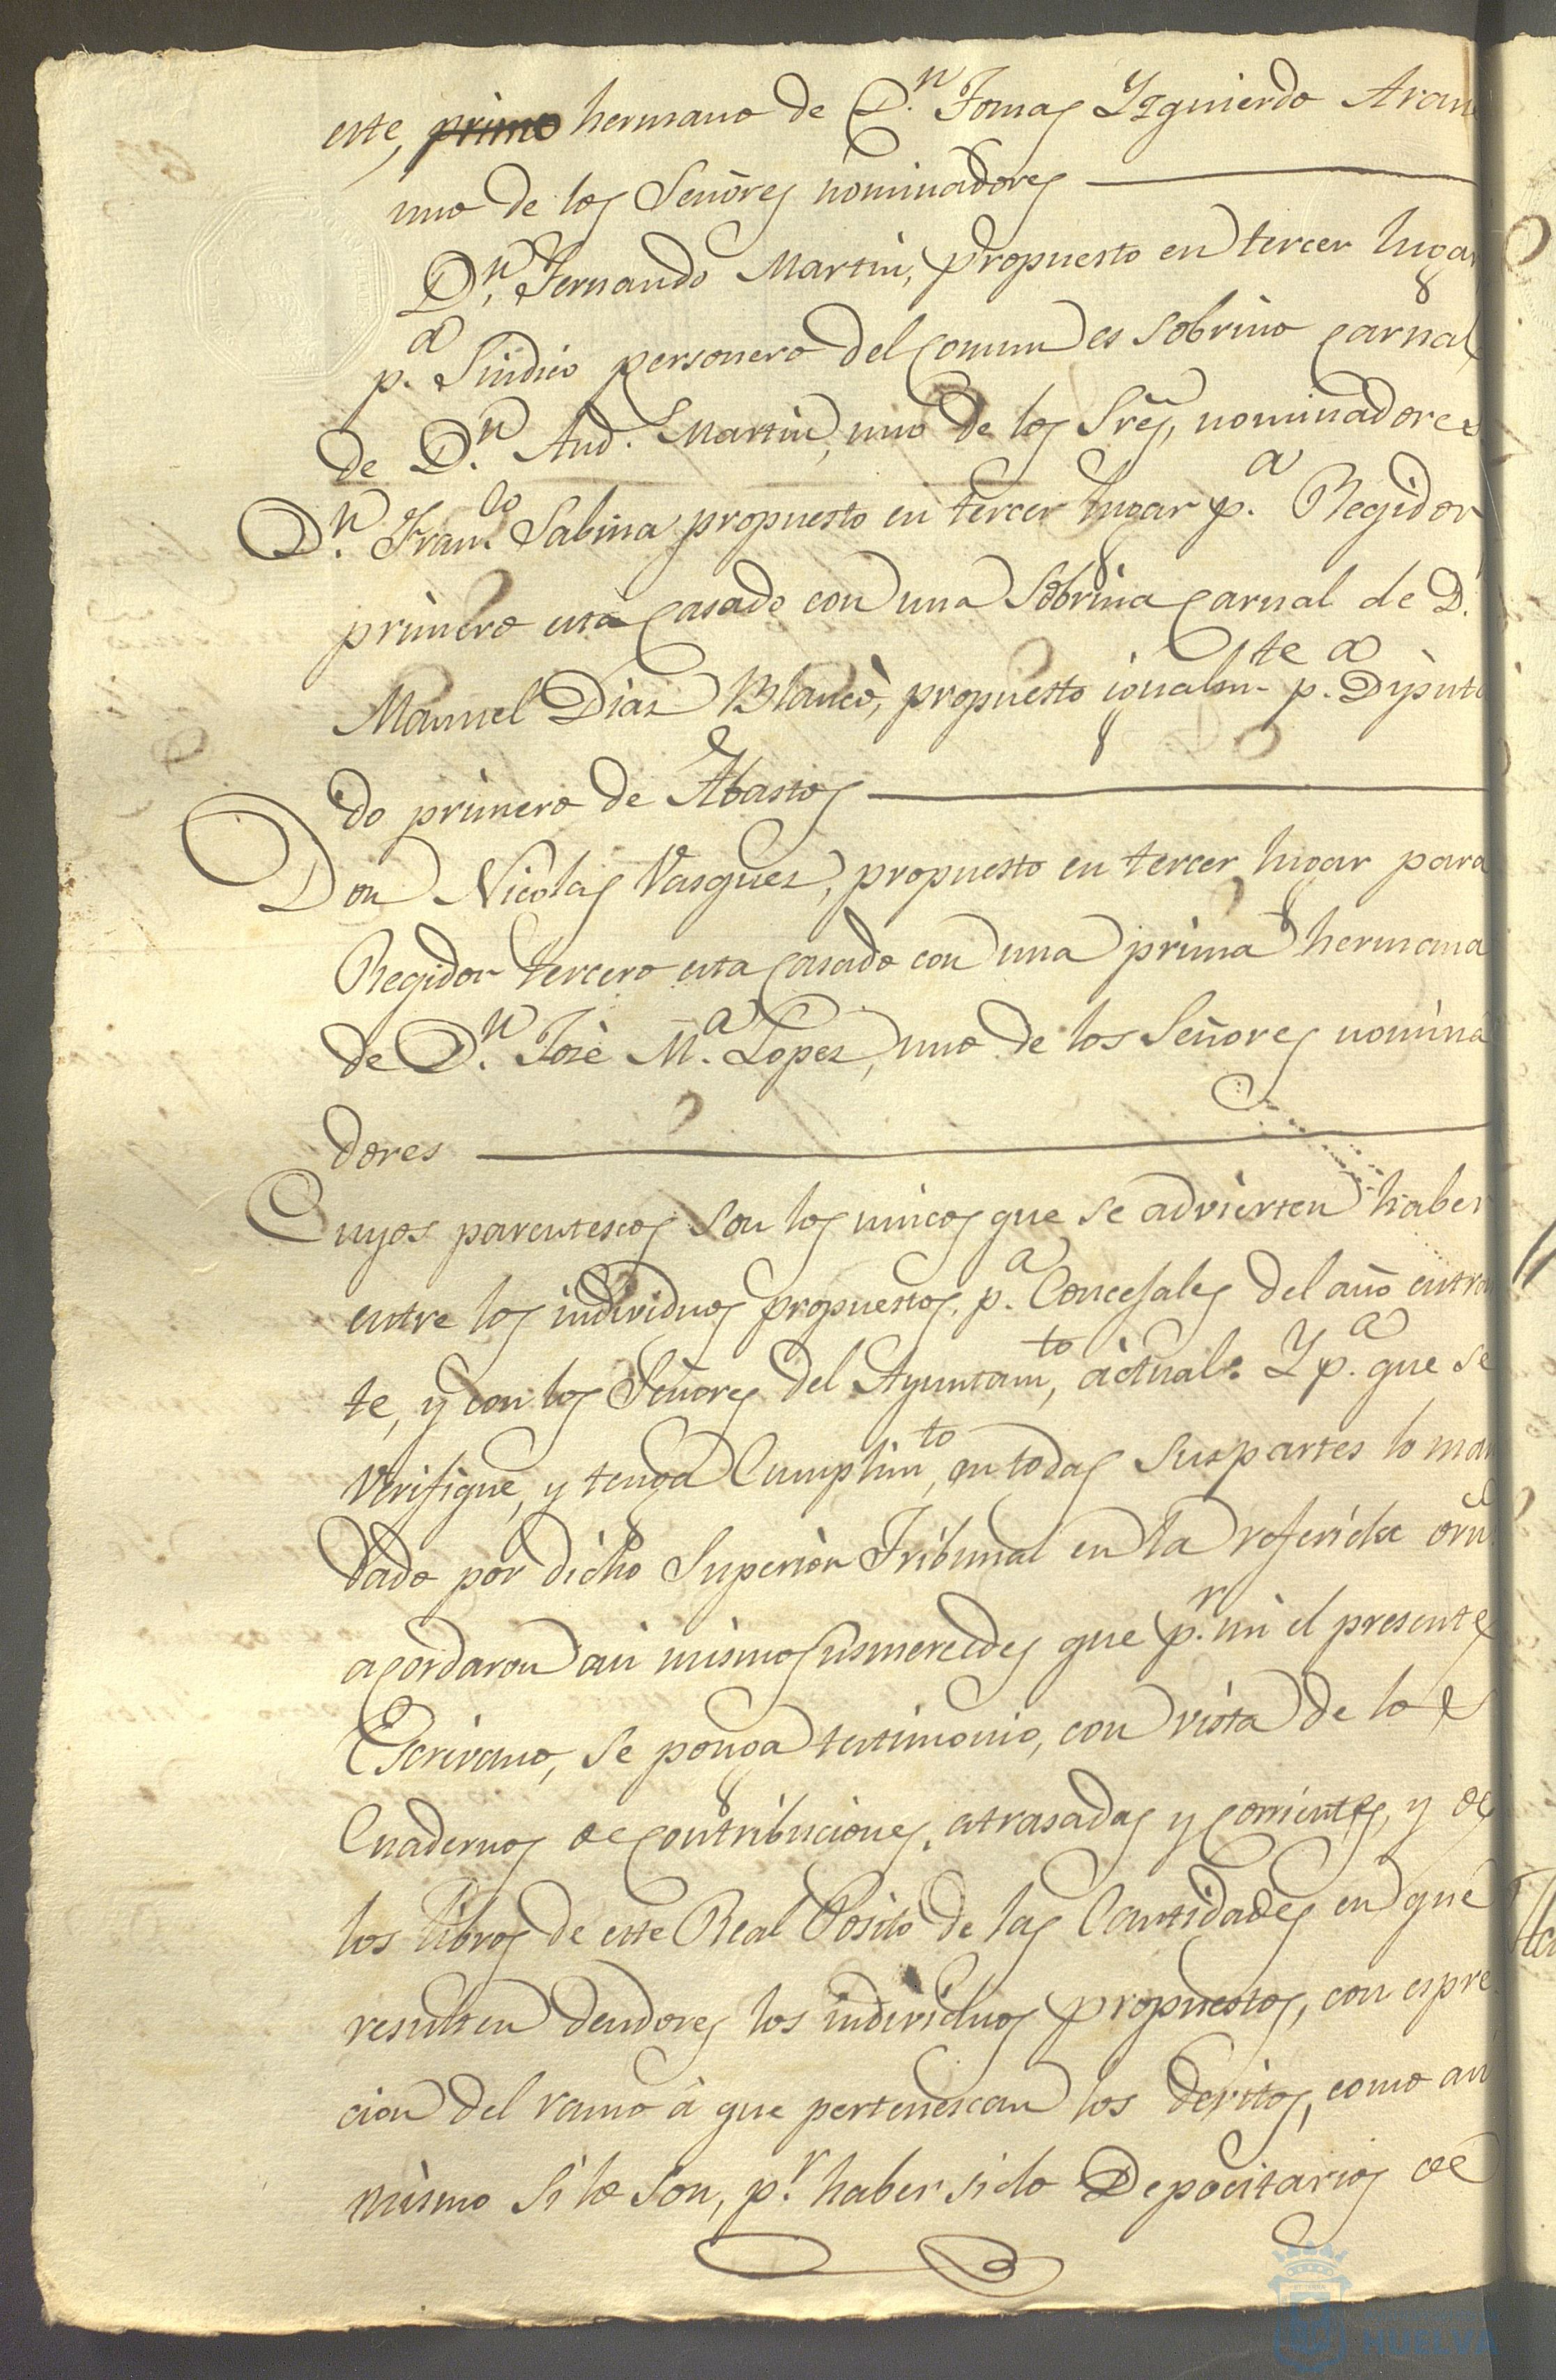 este, primo hermano de D.n Tomas Yzquierdo Aran
uno de los Señores nominadores
D.n Fernando Martin, propuesto en tercer lugar
p.a Sindico personero del Comun es sobrino carnal
de D.n And. Martin, uno de los Sres, nominadores
D.n Fran.co Sabina propuesto en tercer lugar p.a Regidor
primero esta casado con una Sobrina carnal de D.
Manuel Diaz Blanco, propuesto igualm.te p.a Diputa
do primero de Abastos
Don Nicolas Vasquez, propuesto en tercer lugar para
Regidor tercero esta casado con una prima hermana
de D.n José M.a Lopez, uno de los Señores nomina
dores
Cuyos parentescos son los unicos que se advierten haber
entre los individuos propuestos p.a Concejales del año entra
te, y con los Señores del Ayuntam.to actual. Y p.a que se
verifique, y tenga Cumplim.to en todas sus partes lo man
dado por dicho Superior Tribunal en la referida orn
acordaron asi mismo susmercedes que p.r mi el presente
Escrivano, se ponga testimonio, con vista de los
Cuadernos de contribuciones atrasadas y corrientes, y de
los libros de este Real Posito de las Cantidades en que
resulten deudores los individuos propuestos, con espre
cion del ramo á que pertenescan los devitos, como asi
mismo si lo son, p.r haber sido Depocitarios de
HUELVA